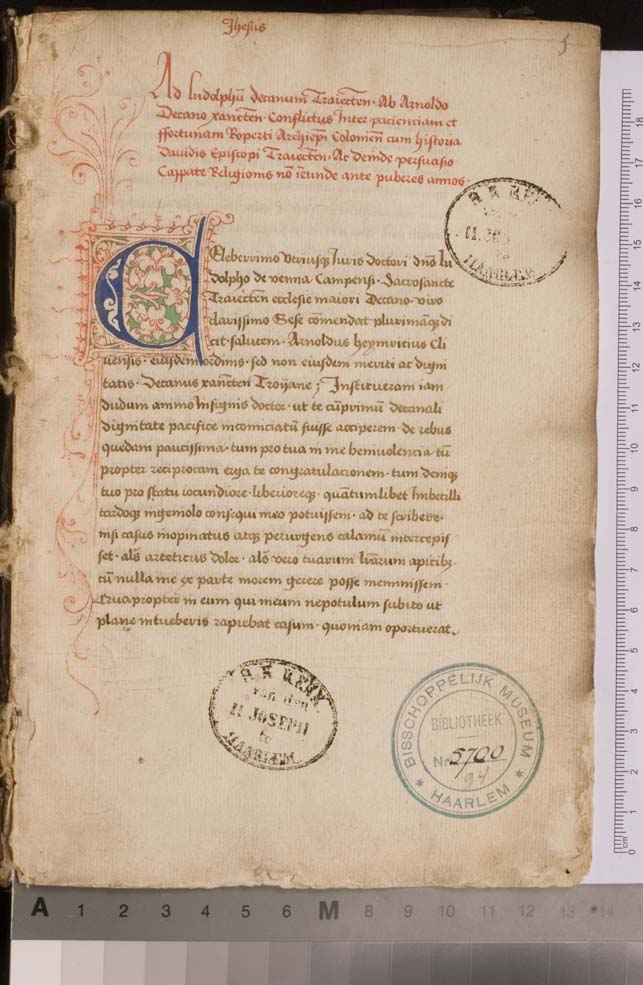 Jhesus
5
Ad ludolphū decanum Traiectēn. Ab Arnoldo
Decano xanctēn. Conflictus Inter pacienciam et
ffortunam Roperti Archiepī Coloniēn cum historia
Davidis Episcopi Traiectēn. Ac deinde persuasio
Cappate Religionis nō ineunde ante puberes annos.
Celeberrimo vtriusqȝ Iuris doctori dnō lu
dolpho de venna Campensi. Sacrosancte
Traiectēn ecclesie maiori Decano. viro
clarissimo Sese cōmendat plurimāqȝ di
cit salutem. Arnoldus heymricius Cli
uensis. eiusdem ordinis. sed non eiusdem meriti ac digni
tatis. Decanus xanctēn Troijane; Institueram iam
dudum animo Insignis doctor. ut te cūprimū decanali
dignitate pacifice inconiciatū fuisse acciperem. de rebus
quedam paucissima. tum pro tua in me beniuolencia. tū
propter reciprocam erga te congratulacionem. tum deniqȝ
tuo pro statu iocundiore. liberioreqȝ. quātumlibet Imbecilli
tardoqȝ ingeniolo consequi meo potuissem. ad te scribere.
nisi casus inopinatus atqȝ perurgens calamū intercepis
set. alās arteticus dolor. alās vero tuarum lrārum apicibȝ.
cū nulla me ex parte morem gerere posse meminissem.
Quapropter in eum qui meum nepotulum subito ut
plane intueberis rapiebat casum. quoniam oportuerat.
R K KERK
H. JOS
te
HAARLEM
R K KERK
van den
H JOSEPH
te
HAARLEM
BISSCHOPPELIJK MUSEUM
BIBLIOTHEEK
Nr. 5700
94
* HAARLEM *
A 1 2 3 4 5 6 M 8 9 10 11 12 13 14
18
17
16
15
14
13
12
11
10
9
8
7
6
5
4
3
2
1
0
cm